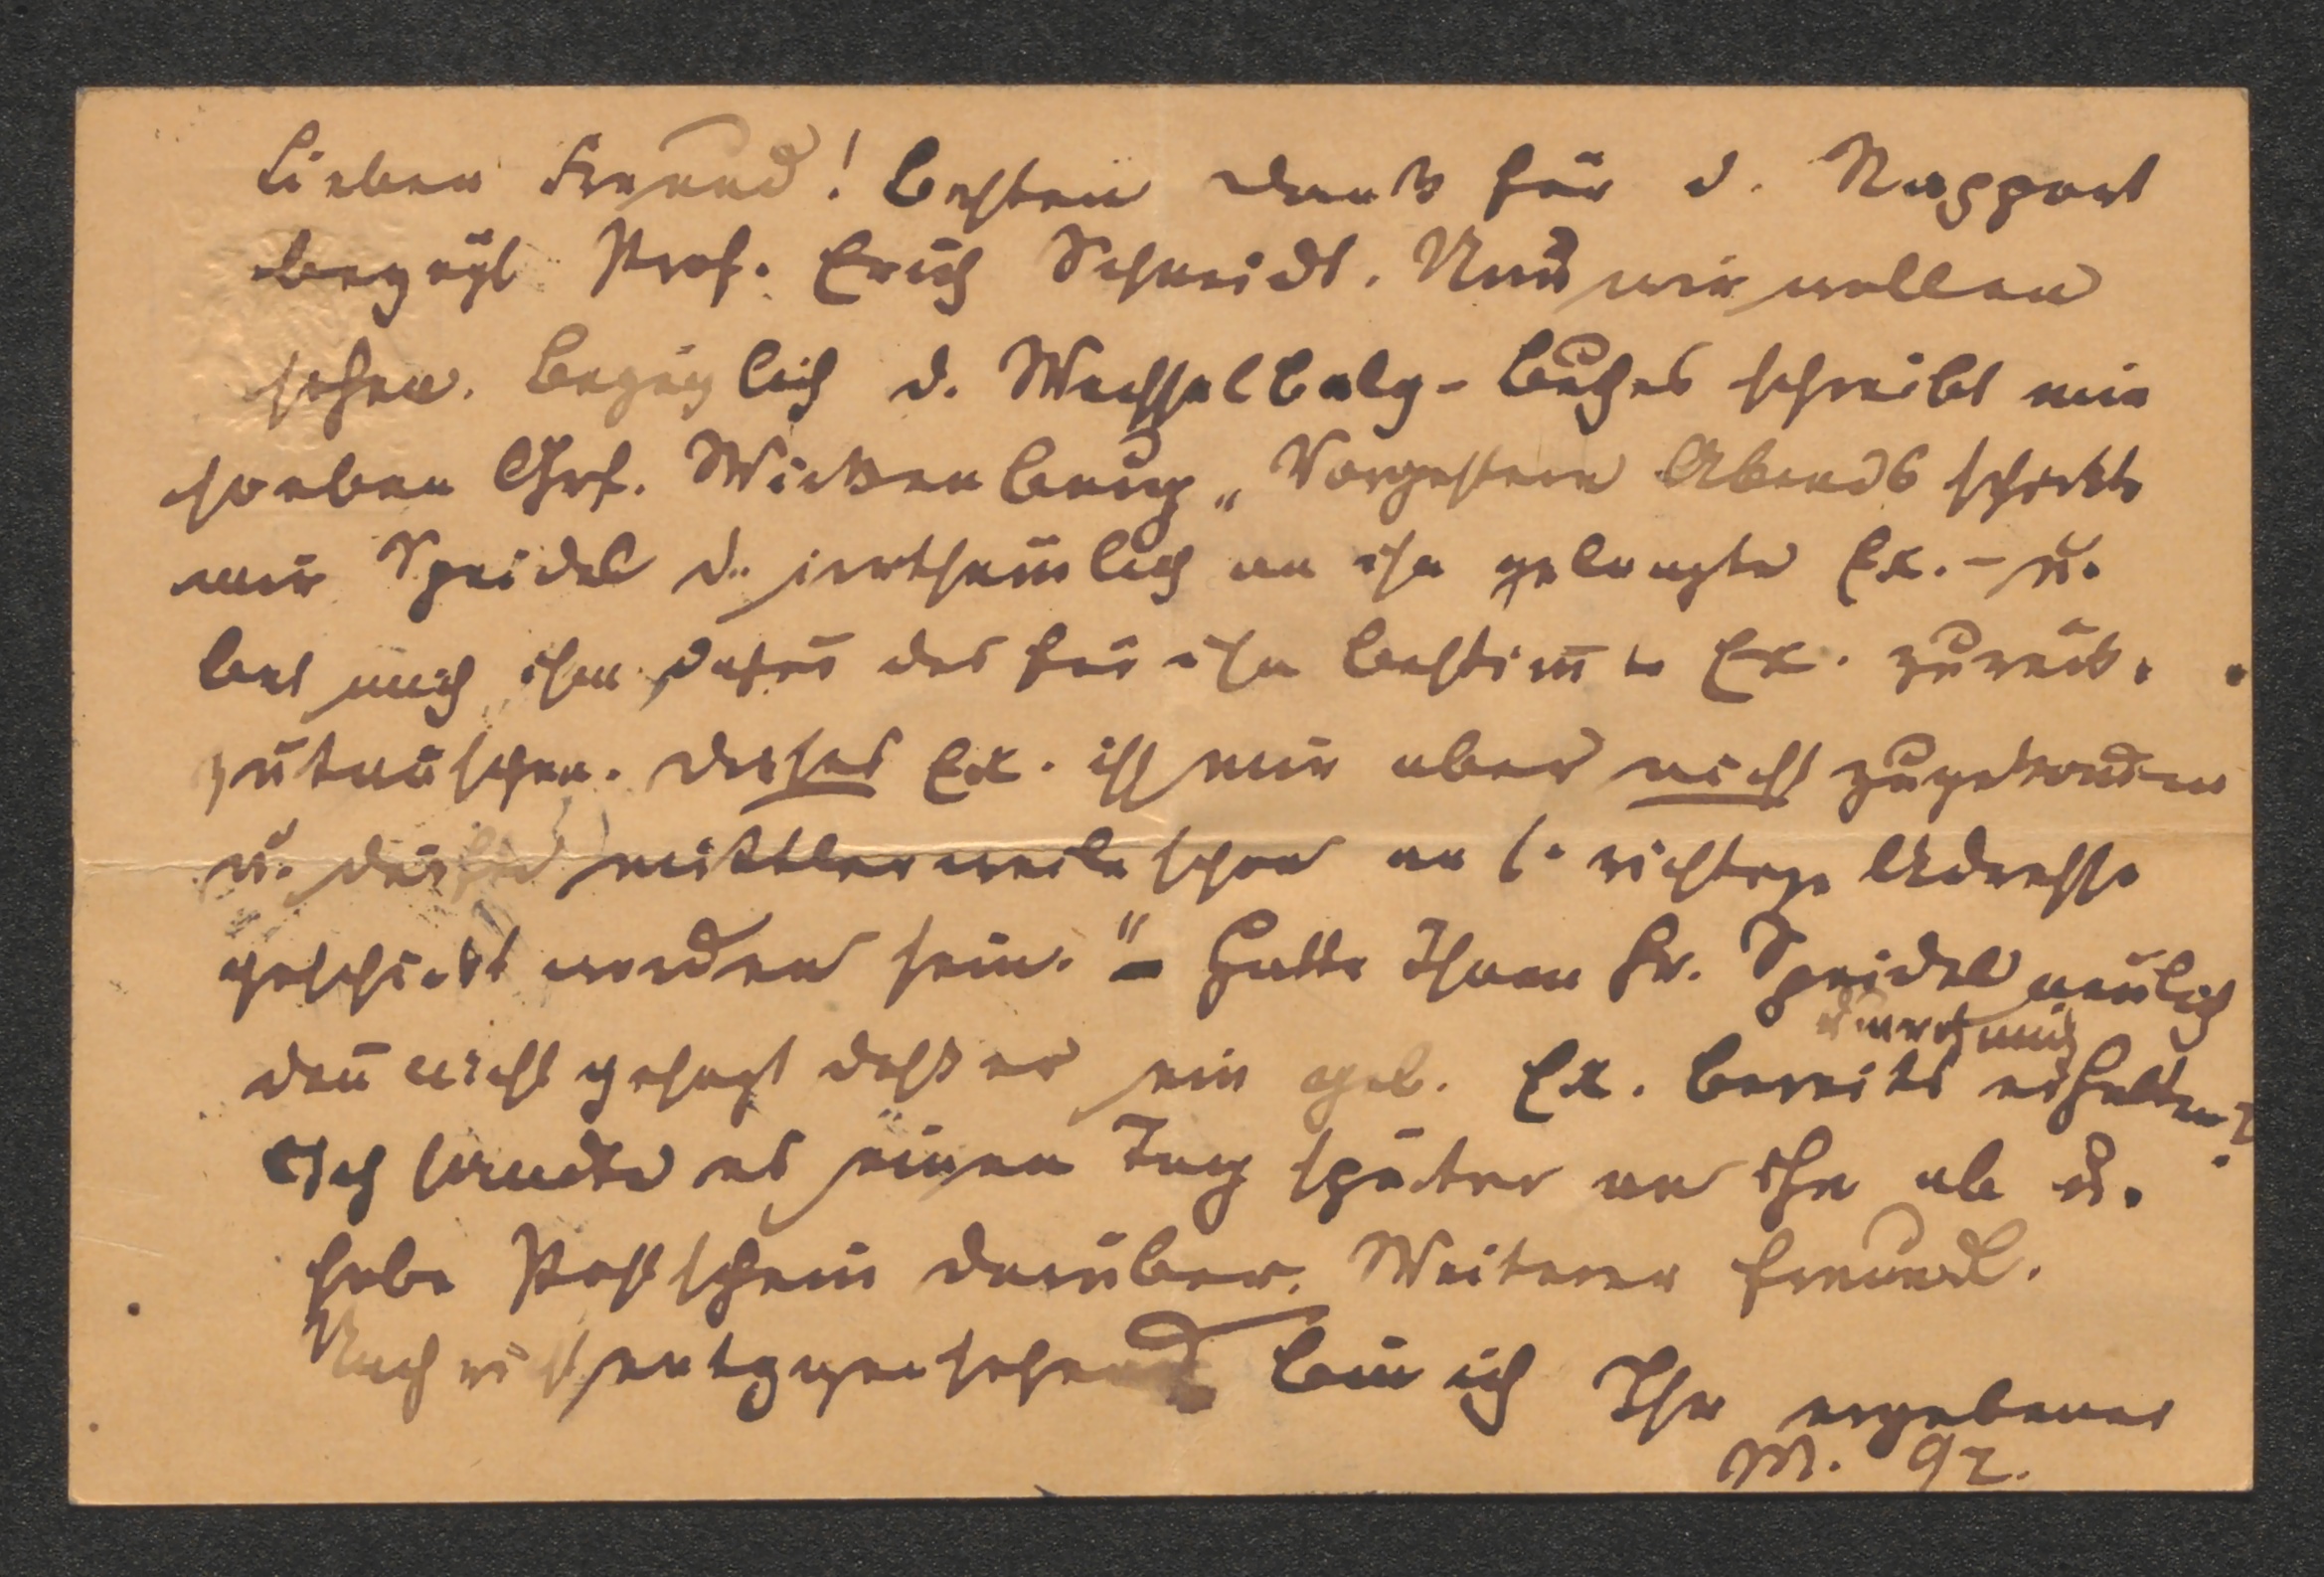 Lieber Freund! Besten Dank für d. Rapport
bezügl Prof. Erich Schmidt. Nun wir wollen
sehen. Bezüglich d. Wechselbalg-Buches schreibt mir
soeben Grf. Wickenburg „Vorgestern Abends schickte
mir Speidel d. irrthümlich an ihn gelangte Ex. – u.
bat mich ihm dafür das für ihn bestim̅te Ex. zurück-
zutauschen. Dieses Ex. ist mir aber nicht zugekom̅en
u. dürfte mittlerweile schon an s. richtige Adresse
geschickt worden sein." – Hatte Ihnen Hr. Speidel neulich
den̅ nicht gesagt dass er ein geb. Ex. bereits durch mich erhalten?
Ich sandte es einen Tag später an ihn ab u.
habe Postschein darüber. Weiterer freundl.
Nachricht entgegensehend bin ich Ihr ergebener